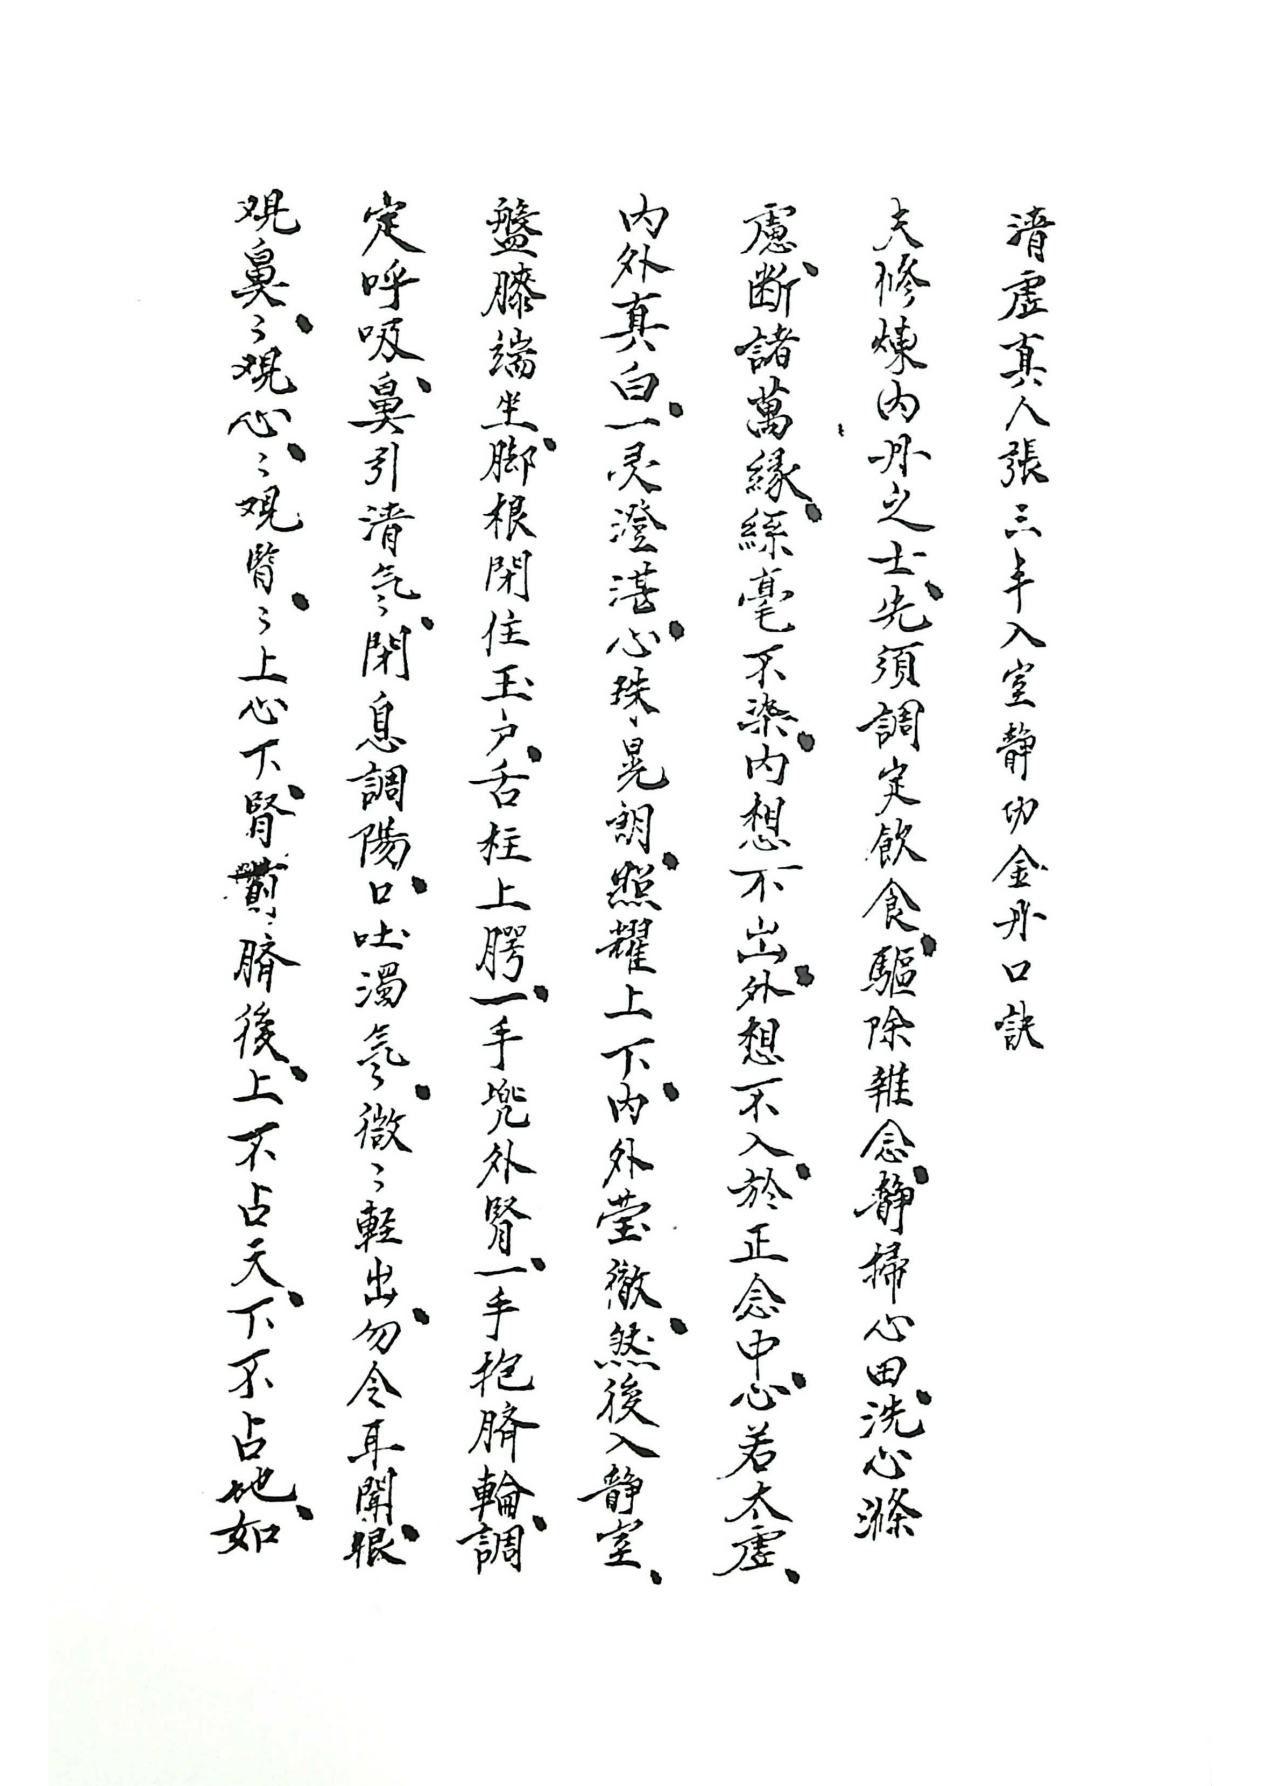 清虛真人張三丰入室靜功金丹口訣
夫修煉内丹之士、先須調定飲食、驅除雜念、靜掃心田、洗心滌
慮、斷諸萬緣、絲毫不染、内想不出、外想不入、於正念中、心若太虛、
内外真白、一灵澄湛、心珠晃朗、照耀上下、内外莹徹、然後入靜室、
盤膝端坐、脚根閉住玉户、舌柱上腭、一手兜外腎、一手抱臍輪、調
定呼吸、鼻引清氣、〻閉息調陽、口吐濁氣〻、微〻輕出、勿令耳聞、眼
覌鼻、〻覌心、〻覌腎、〻上心下、腎前臍後、上不占天、下不占地、如